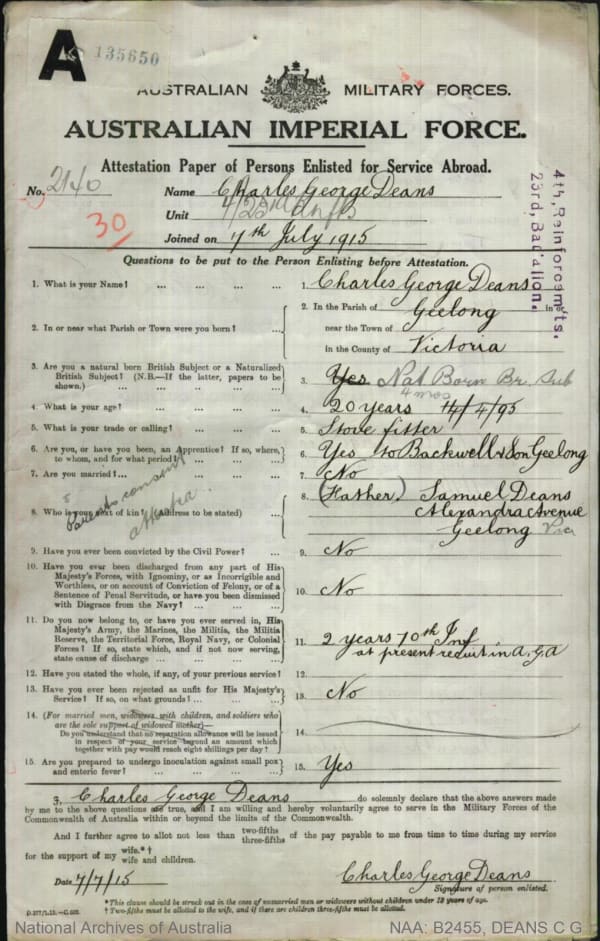 A 135650
AUSTRALIAN MILITARY FORCES.
AUSTRALIAN IMPERIAL FORCE.
Attestation Paper of Persons Enlisted for Service Abroad.
No. 2140 Name Charles George Deans
30
Unit 4/23rd
Joined on 7th July 1915
4th, Reinforcemts.
23rd, Battalion.
Questions to be put to the Person Enlisting before Attestation.
1. What is your Name? ... ... ... ... 1. Charles George Deans
2. In or near what Parish or Town were you born? ... 2. In the Parish of Geelong in or
near the Town of
in the County of Victoria
3. Are you a natural born British Subject or a Naturalized
British Subject? (N.B.—If the latter, papers to be
shown.) ... ... ... ... ... 3. Yes Nat Born Br. Sub
4. What is your age? ... ... ... ... 4. 20 years 4 mos 14/4/95
5. What is your trade or calling? ... ... ... 5. Stove fitter
6. Are you, or have you been, an Apprentice? If so, where,
to whom, and for what period? ... ... ... 6. Yes to Backwell & Son Geelong
7. Are you married? ... ... ... ... 7. No
8. Who is your next of kin? (Address to be stated) ... 8. (Father) Samuel Deans
Alexandra Avenue
Geelong Vic
Parents consent
9. Have you ever been convicted by the Civil Power? ... 9. No
10. Have you ever been discharged from any part of His
Majesty's Forces, with Ignominy, or as Incorrigible and
Worthless, or on account of Conviction of Felony, or of a
Sentence of Penal Servitude, or have you been dismissed
with Disgrace from the Navy? ... ... ... 10. No
11. Do you now belong to, or have you ever served in, His
Majesty's Army, the Marines, the Militia, the Militia
Reserve, the Territorial Force, Royal Navy, or Colonial
Forces? If so, state which, and if not now serving,
state cause of discharge ... ... ... ... 11. 2 years 70th Inf
at present recruit in A.G.A
12. Have you stated the whole, if any, of your previous service? 12.
13. Have you ever been rejected as unfit for His Majesty's
Service? If so, on what grounds? ... ... ... 13. No
14. (For married men, widowers with children, and soldiers who
are the sole support of widowed mother)—
Do you understand that no separation allowance will be issued
in respect of your service beyond an amount which
together with pay would reach eight shillings per day? 14.
15. Are you prepared to undergo inoculation against small pox
and enteric fever? ... ... ... ... 15. Yes
I, Charles George Deans do solemnly declare that the above answers made
by me to the above questions are true, and I am willing and hereby voluntarily agree to serve in the Military Forces of the
Commonwealth of Australia within or beyond the limits of the Commonwealth.
And I further agree to allot not less than two-fifths three-fifths of the pay payable to me from time to time during my service
for the support of my wife.*†
wife and children.
Date 7/7/15 Charles George Deans
Signature of person enlisted.
*This clause should be struck out in the cases of unmarried men or widowers without children under 18 years of age.
†Two-fifths must be allotted to the wife, and if there are children three-fifths must be allotted.
National Archives of Australia NAA: B2455, DEANS C G